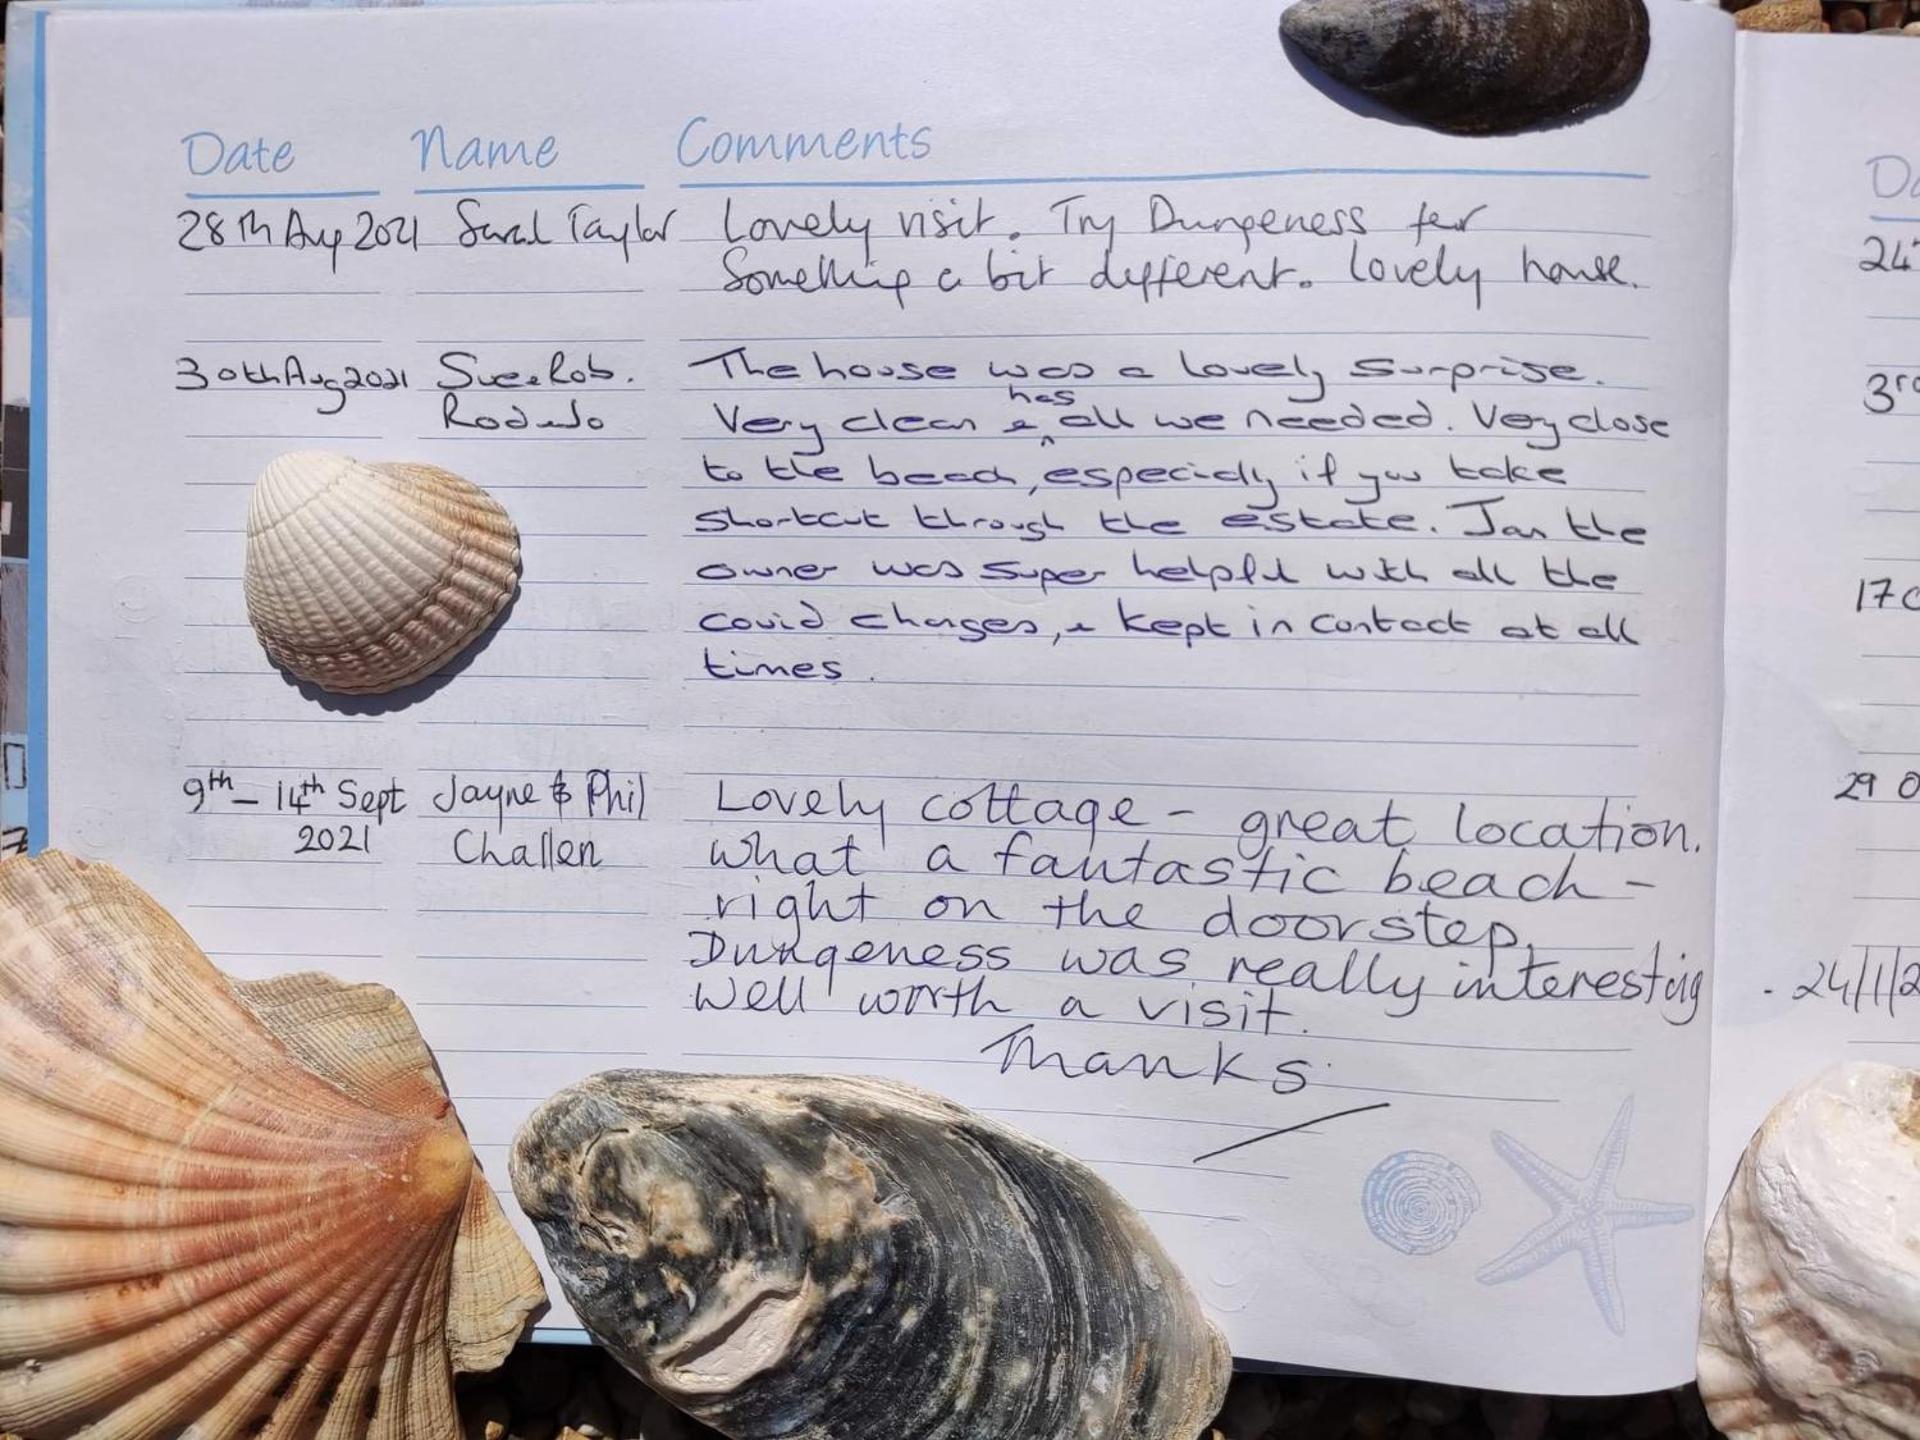 Date Name Comments
28th Aug 2021 Sarah Taylor Lovely visit. Try Dungeness for
Something a bit different. Lovely house.
30th Aug 2021 Sue & Rob. The house was a lovely surprise.
has
Very clean & ^ all we needed. Very close
to the beach, especially if you take
shortcut through the estate. Jan the
owner was super helpful with all the
covid changes, & kept in contact at all
times.
9th – 14th Sept Jayne & Phil Lovely cottage – great location.
2021 Challen what a fantastic beach –
right on the doorstep.
Dungeness was really interesting
Well worth a visit.
Thanks.
Da
24
3rd
17 O
29 O
24/1/2